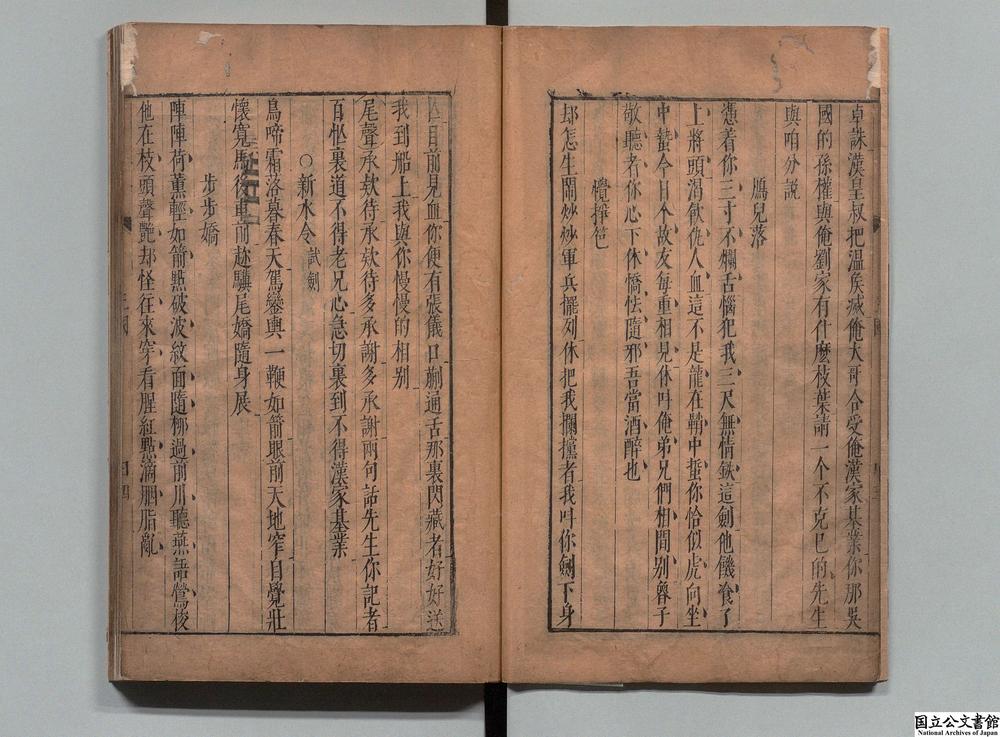 卓誅漢皇叔把溫侯滅俺大哥合受俺漢家基業你那吳
國的孫權與俺劉家有什麽枝葉請一个不克巳的先生
與咱分說
鴈兒落
憑着你三寸不爛舌惱犯我三尺無情鉄這劍他饑飡了
上將頭渴飲仇人血這不是龍在鞘中蜇你恰似虎向坐
中蟄今日个故友每重相見休呌俺弟兄們相間别魯子
敬聽者你心下休憍怯隨邪吾當酒醉也
攪箏笆
却怎生鬧炒炒軍兵擺列休把我攔攩者我呌你劍下身
目前見血你便有張儀口蒯通舌那裏閃藏者好好送
我到船上我與你慢慢的相别
尾聲承欵待承欵待多承謝多承謝兩句話先生你記者
百忙裏道不得老兄心急切裏到不得漢家基業
○新水令 試劍
鳥啼霜落暮春天駕鑾輿一鞭如箭眼前天地窄自覺壯
懷寬馬後車前趂驥尾嬌隨身展
步步嬌
陣陣荷薰輕如箭點破波紋面隨柳過前川聽燕語鶯梭
他在枝頭聲艷却怪往來穿看腥紅點滴胭脂亂
国立公文書館
National Archives of Japan